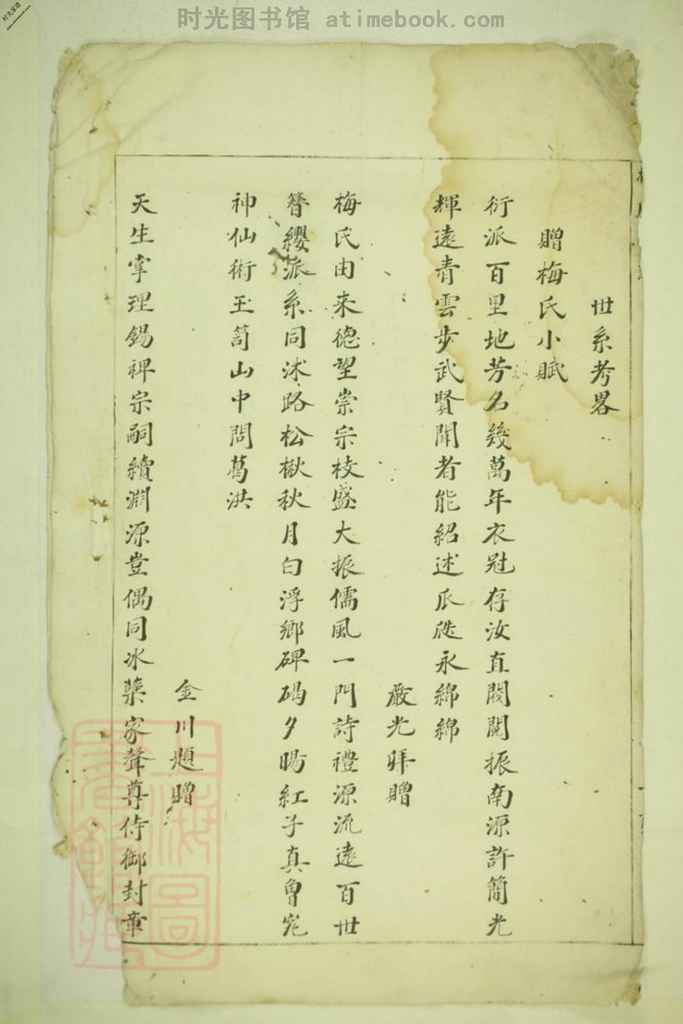 时光图书馆 atimebook.com
世系考畧
贈梅氏小賦
衍派百里地芳名幾萬年衣冠存汝直閥閱振南源許簡光
輝遠青雲步武賢聞者能紹述瓜瓞永綿綿
嚴光拜贈
梅氏由来德望崇宗枝盛大振儒風一門詩禮源流遠百世
簪纓派系同沭路松楸秋月白浮鄉碑碣夕陽紅子真曾宛
神仙術玉笥山中問葛洪
金川題贈
天生宰理錫裨宗嗣續淵源豈偶同冰蘗家聲尊侍御封章